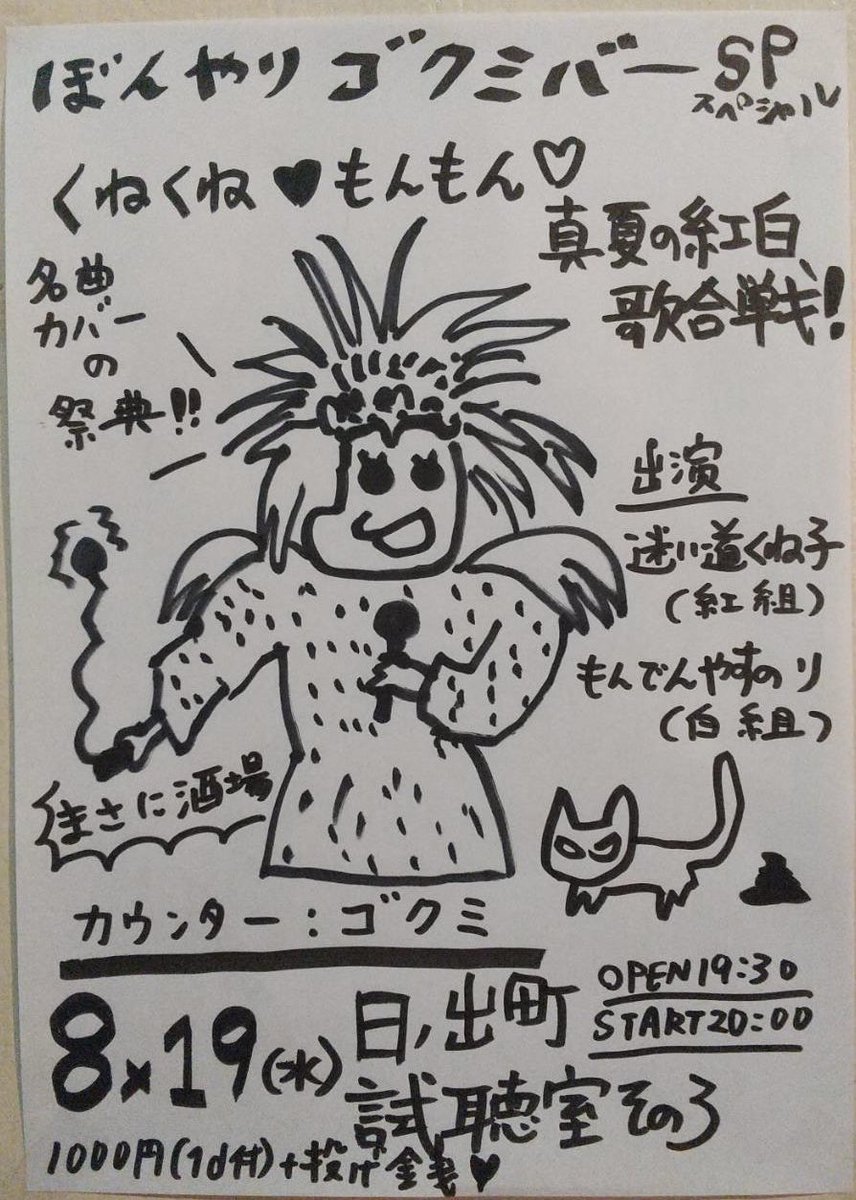 ぼんやりゴクミバーSP
スペシャル
くねくね♥もんもん♡
真夏の紅白
歌合戦!
名曲
カバー
の
祭典!!
出演
迷い道くね子
(紅組)
もんでんやすのり
(白組)
まさに酒場
カウンター:ゴクミ
8×19(水)
日ノ出町
試聴室その3
OPEN19:30
START20:00
1000円(1d付)+投げ銭♥